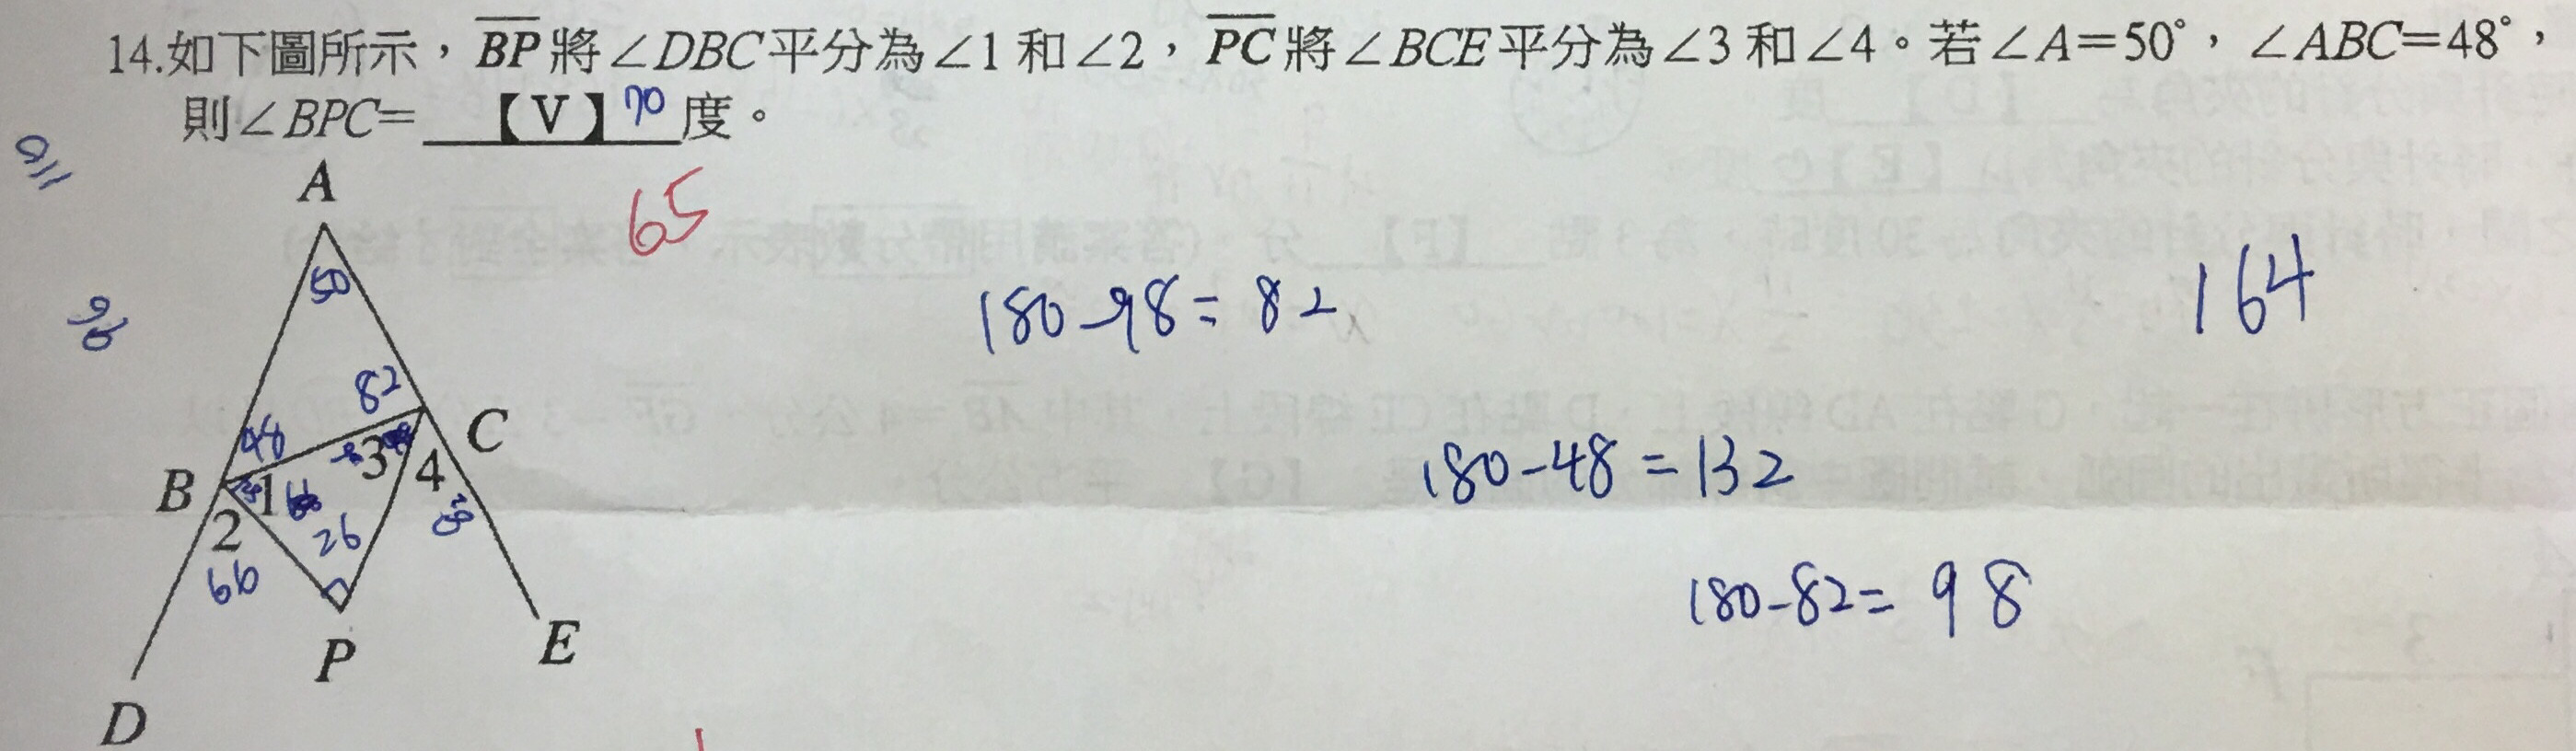 14.如下圖所示，BP將∠DBC平分為∠1和∠2，PC將∠BCE平分為∠3和∠4。若∠A=50°，∠ABC=48°，
則∠BPC= 【V】70 度。
65
A
50
180-98=82
164
82
48
C
B
1
3
4
180-48=132
2
26
66
180-82=98
P
E
D